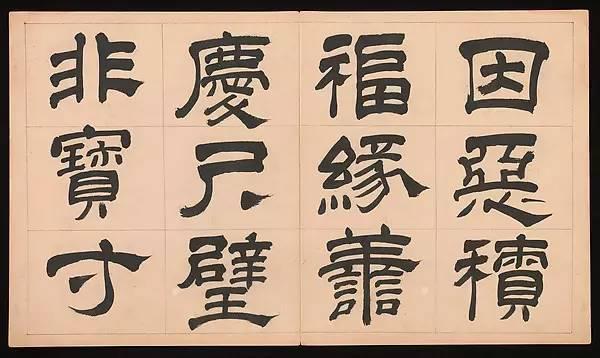 因惡積
福緣善
慶尺璧
非寶寸